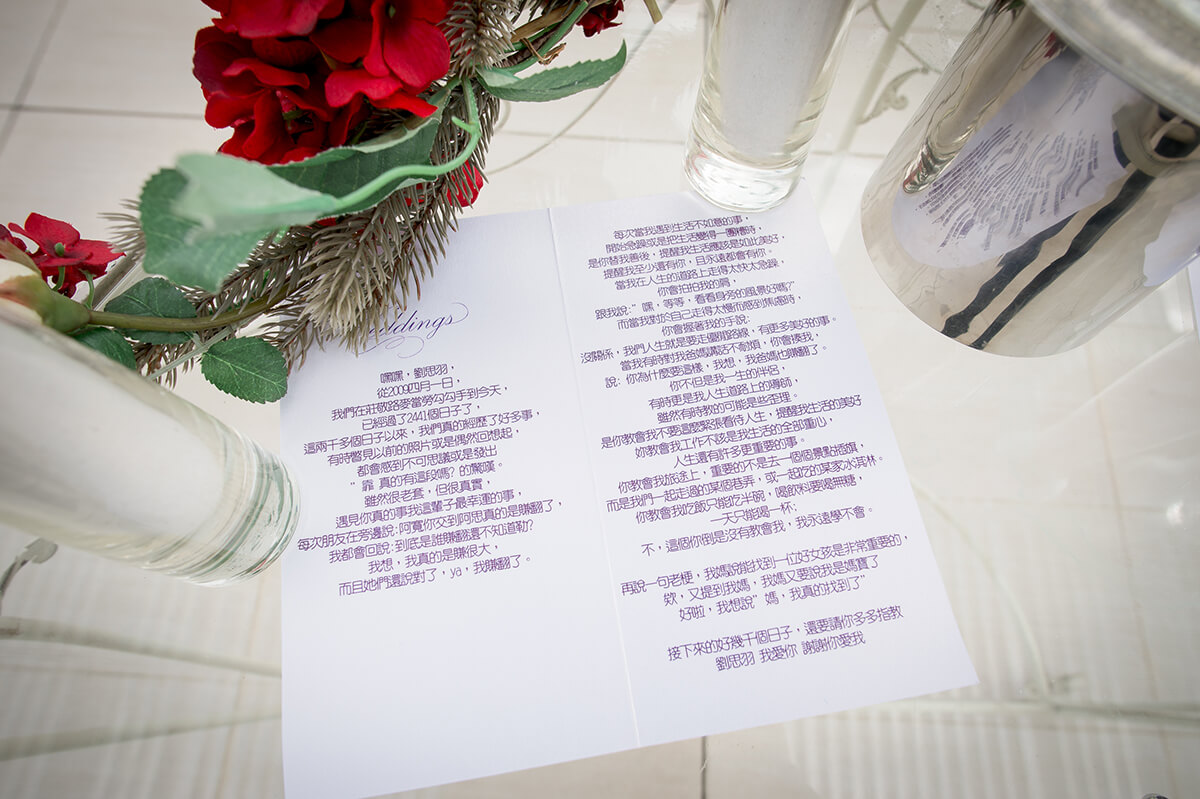 eddings
嘿嘿，劉思羽，
從2009四月一日，
我們在莊敬路麥當勞勾勾手到今天，
已經過了2441個日子了，
這兩千多個日子以來，我們真的經歷了好多事，
有時瞥見以前的照片或是偶然回想起，
都會感到不可思議或是發出
“ 靠 真的有這段嗎? 的驚嘆。
雖然很老套，但很真實，
遇見你真的事我這輩子最幸運的事，
每次朋友在旁邊說:阿寬你交到阿思真的是賺翻了，
我都會回說:到底是誰賺翻還不知道勒?
我想，我真的是賺很大，
而且她們還說對了，ya，我賺翻了。
每次當我遇到生活不如意的事，
開始急躁或是把生活變得一團糟時，
是你替我善後，提醒我生活應該是如此美好，
提醒我至少還有你，且永遠都會有你，
當我在人生的道路上走得太快太急躁，
你會拍拍我的肩，
跟我說:“ 嘿，等等，看看身旁的風景好嗎?”
而當我對於自己走得太慢而感到焦慮時，
你會握著我的手說:
沒關係，我們人生就是要走優閒路線，有更多美好的事。
當我有時對我爸媽講話不耐煩，你會揍我，
說: 你為什麼要這樣，我想，我爸媽也賺翻了。
你不但是我一生的伴侶，
有時更是我人生道路上的導師，
雖然有時教的可能是些歪理。
是你教會我不要這麼緊張看待人生，提醒我生活的美好
妳教會我工作不該是我生活的全部重心，
人生還有許多更重要的事。
你教會我旅途上，重要的不是去一個個景點插旗，
而是我們一起走過的某個巷弄，或一起吃的某家冰其林。
你教會我吃飯只能吃半碗，喝飲料要喝無糖，
一天只能喝一杯；
不，這個你倒是沒有教會我，我永遠學不會。
再說一句老梗，我媽說能找到一位好女孩是非常重要的，
欸，又提到我媽，我媽又要說我是媽寶了
好啦，我想說” 媽，我真的找到了”
接下來的好幾千個日子，還要請你多多指教
劉思羽 我愛你 謝謝你愛我